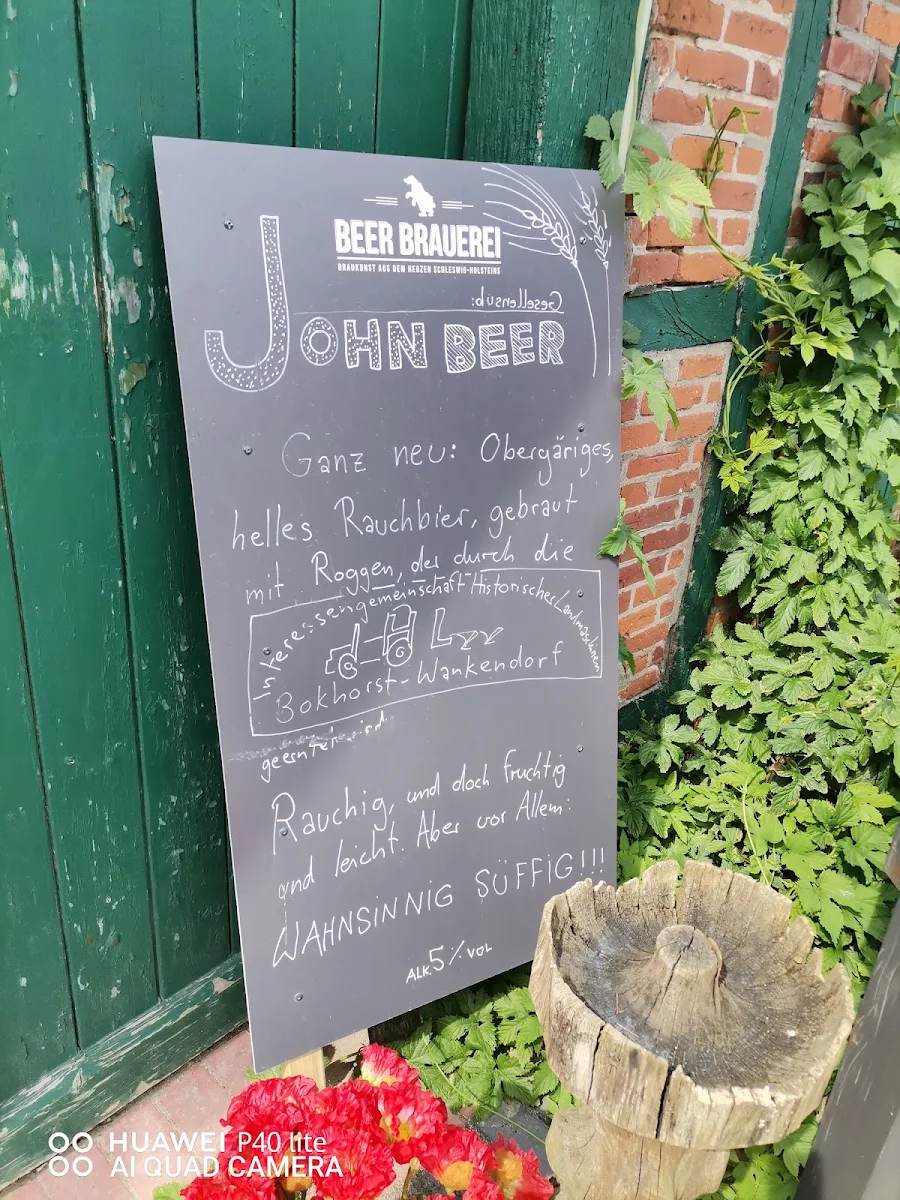 BEER BRAUEREI
BRAUKUNST AUS DEM HERZEN SCHLESWIG-HOLSTEINS
Gesellensud:
JOHN BEER
Ganz neu: Obergäriges,
helles Rauchbier, gebraut
mit Roggen, der durch die
Interessengemeinschaft Historischer Landmaschinen
Bokhorst-Wankendorf
geernten wird.
Rauchig, und doch fruchtig
und leicht. Aber vor Allem:
WAHNSINNIG SÜFFIG!!!
ALK. 5% VOL
HUAWEI P40 lite
AI QUAD CAMERA